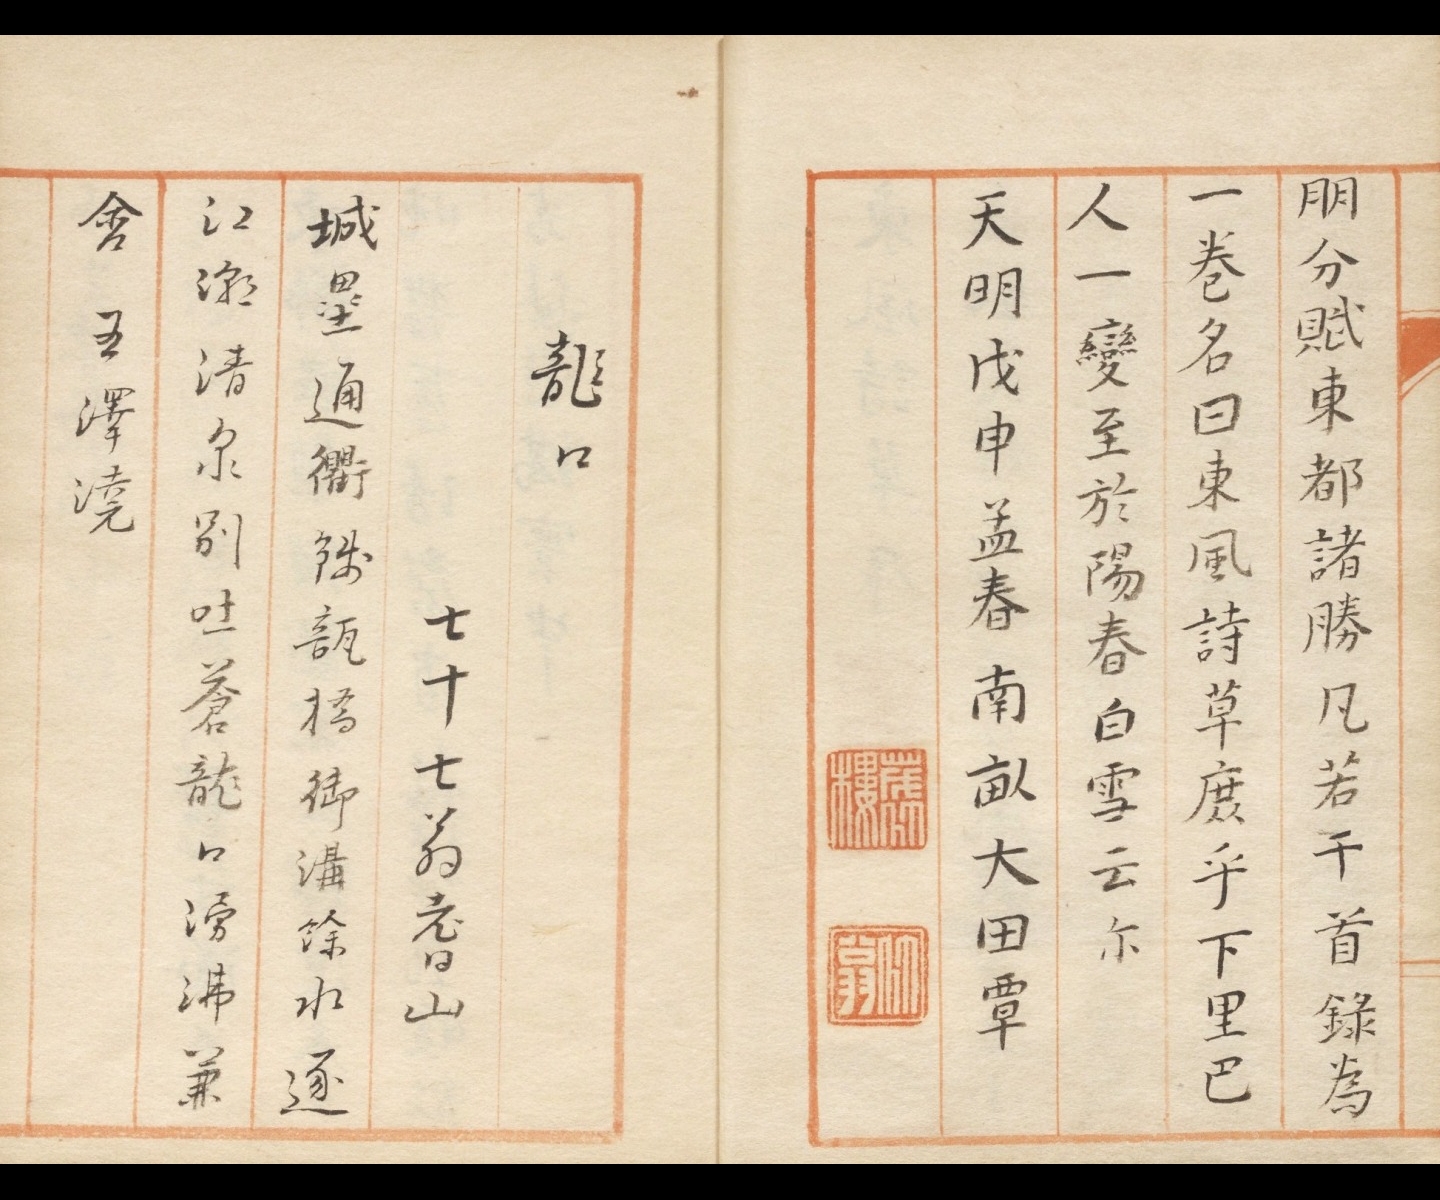 朋分賦東都諸勝凡若干首錄為
一卷名曰東風詩草庶乎下里巴
人一變至於陽春白雪云尓
天明戊申孟春南畝大田覃
龍口
七十七翁耆山
城壘通衢餞瓶橋御溝餘水逐
江潮清泉別吐蒼龍口滂沸兼
含五澤澆